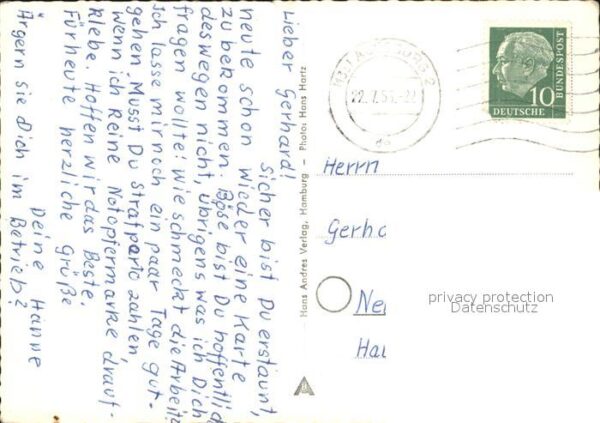 Lieber Gerhard!
Sicher bist Du erstaunt,
heute schon wieder eine Karte
zu bekommen. Böse bist Du hoffentlich
deswegen nicht, Übrigens was ich Dich
fragen wollte: wie schmeckt die Arbeit?
Ich lasse mir noch ein paar Tage gut-
gehen. Musst Du Strafporto zahlen,
wenn ich keine Notopfermarke drauf-
klebe. Hoffen wir das Beste.
Für heute herzliche Grüße
Deine Hanne
Ärgern sie Dich im Betrieb?
Hans Andres Verlag, Hamburg – Photo: Hans Hartz
DEUTSCHE
BUNDESPOST
10
Herrn
Gerh
Ne
Hau
privacy protection
Datenschutz